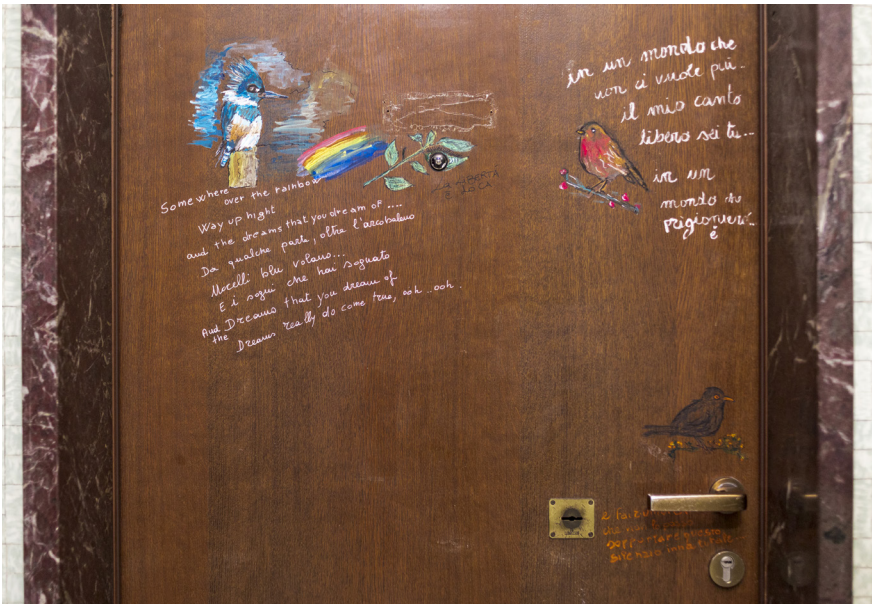 Somewhere over the rainbow
Way up hight
and the dreams that you dream of ....
Da qualche parte, oltre l'arcobaleno
Uccelli blu volano...
E i sogni che hai sognato
And Dreams that you dream of
the Dreams really do come true, ooh..ooh.
LA LIBERTÀ
in un mondo che
non ci vuole più..
il mio canto
libero sei tu...
in un
mondo che
prigioniero..
è
e
che non
sopportare questo
silenzio innaturale...